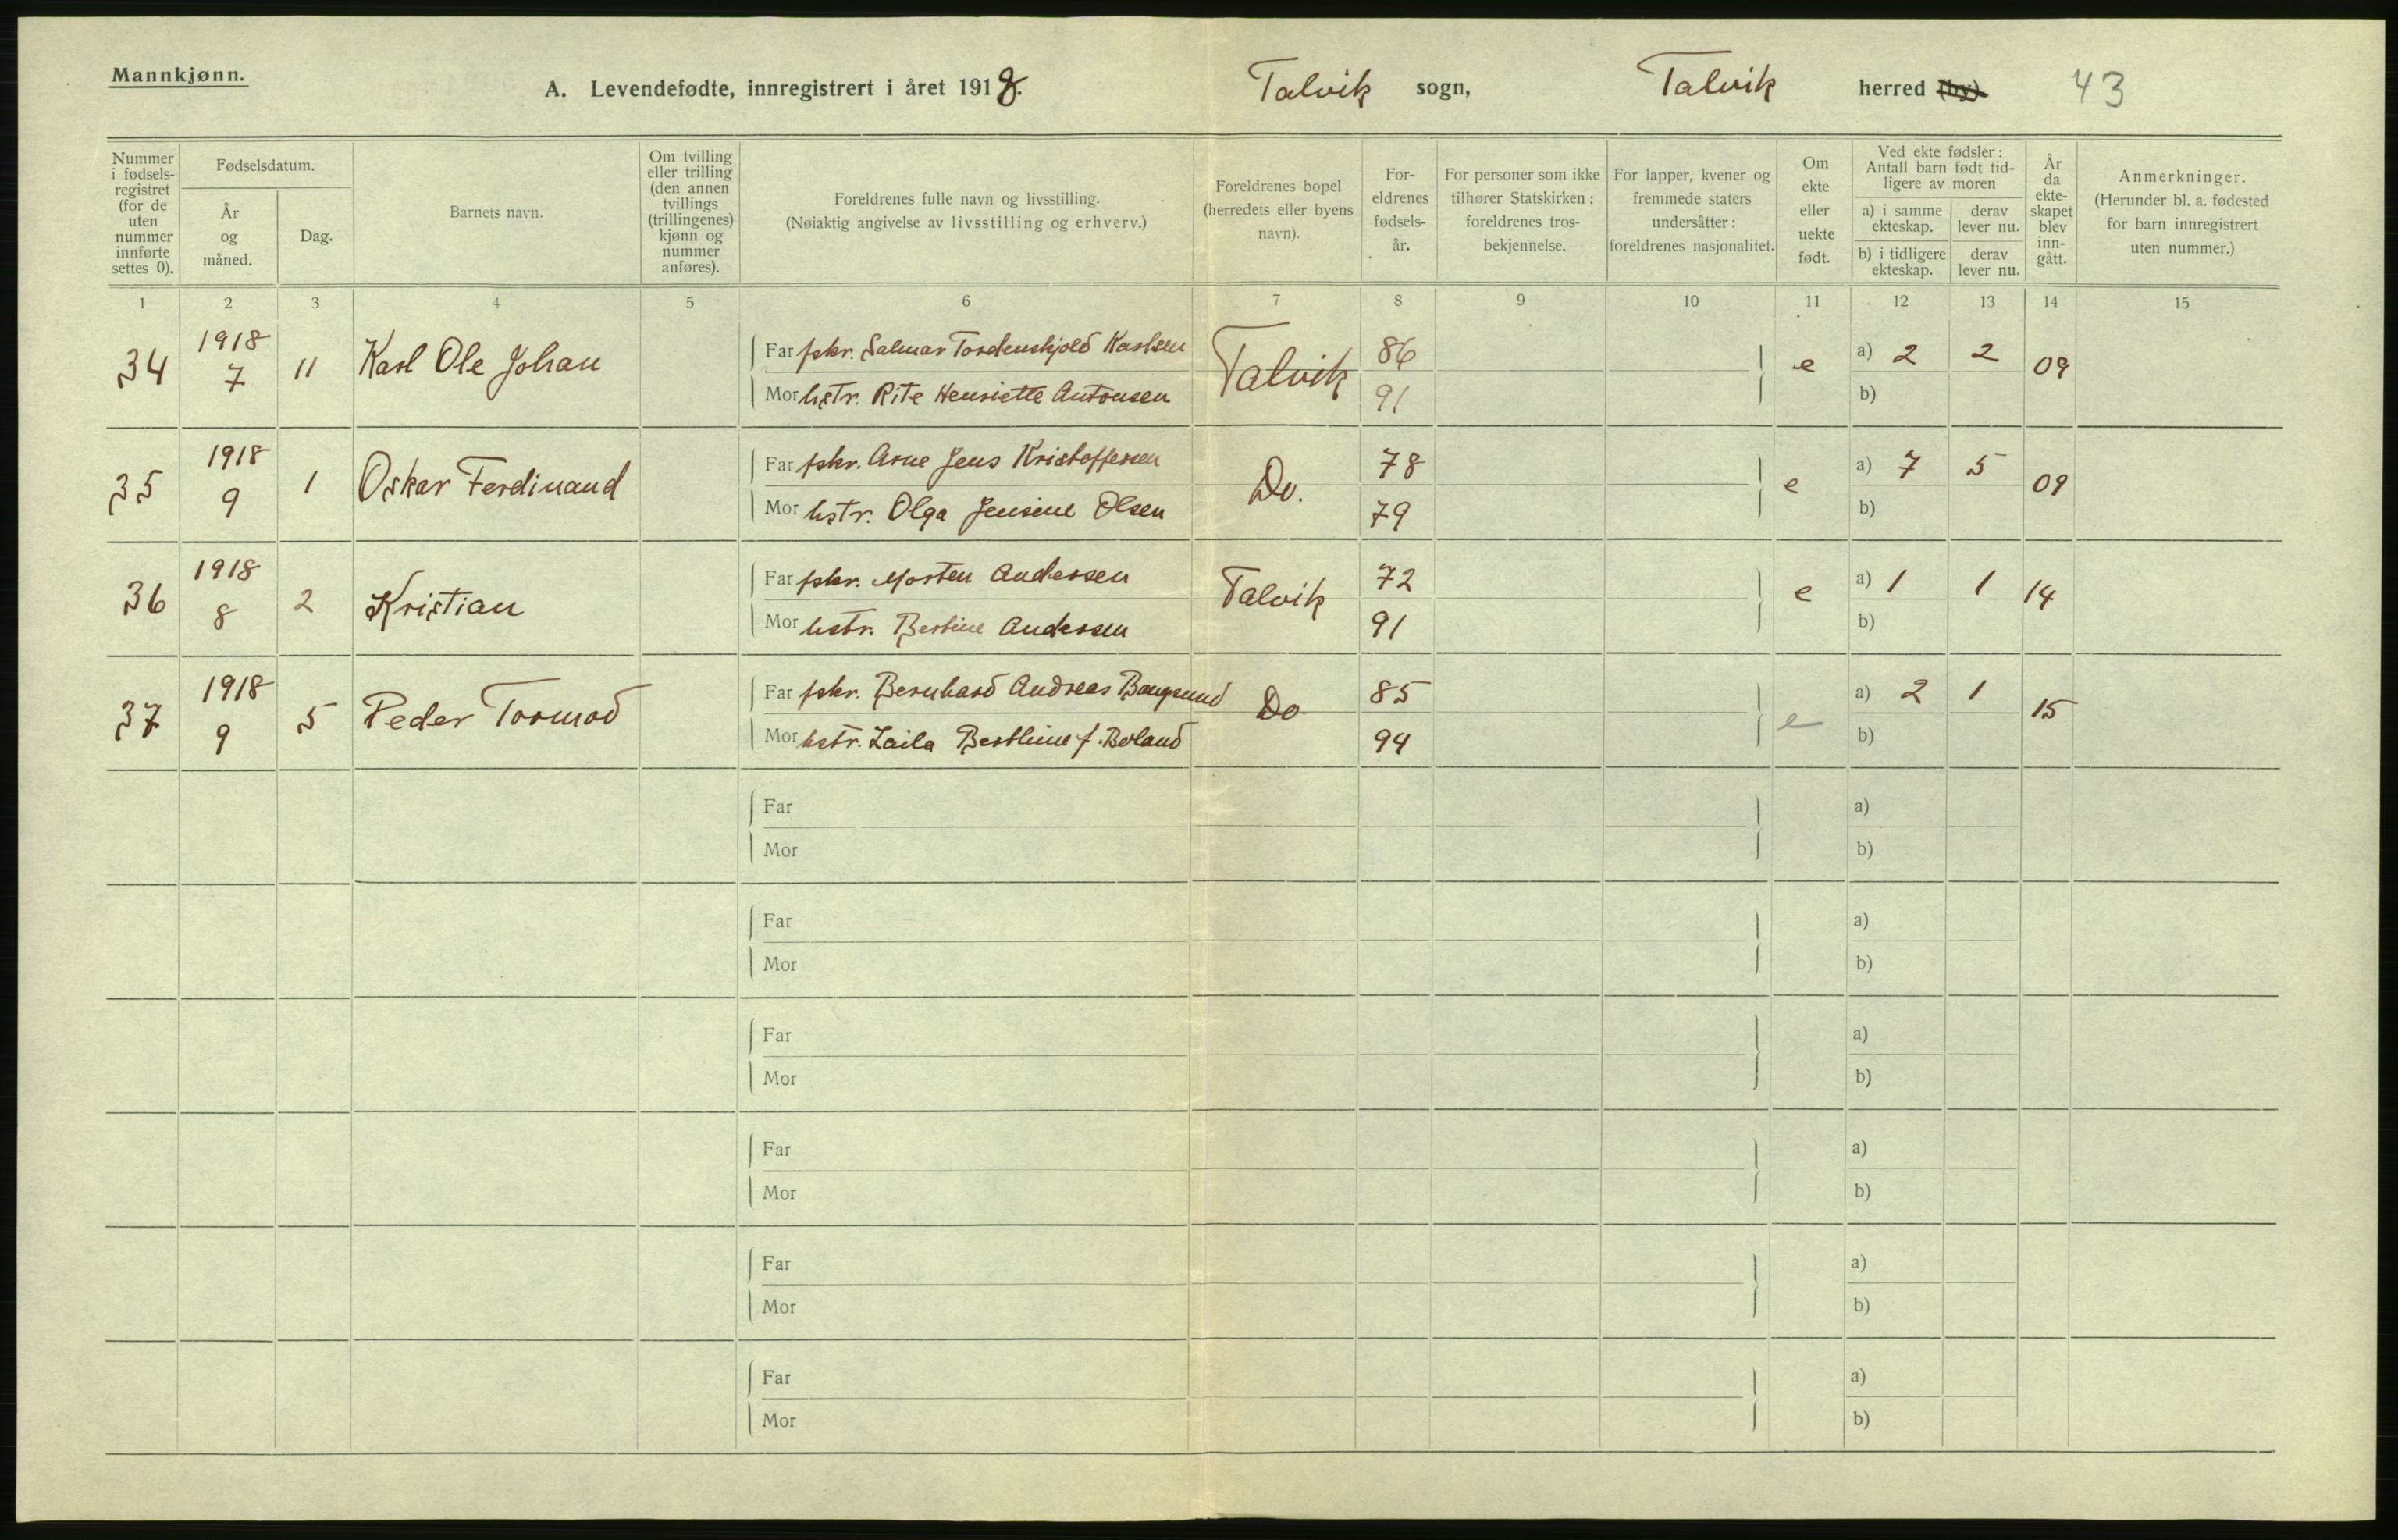 Mannkjønn.
A. Levendefødte, innregistrert i året 1918. Talvik sogn, Talvik herred (by) 43
Nummer i fødsels- registret (for de uten nummer innførte settes 0).
Fødselsdatum.
År og måned.
Dag.
Barnets navn.
Om tvilling eller trilling (den annen tvillings (trillingenes) kjønn og nummer anføres).
Foreldrenes fulle navn og livsstilling.
(Nøiaktig angivelse av livsstilling og erhverv.)
Foreldrenes bopel (herredets eller byens navn).
For- eldrenes fødsels- år.
For personer som ikke tilhører Statskirken: foreldrenes tros- bekjennelse.
For lapper, kvener og fremmede staters undersåtter: foreldrenes nasjonalitet.
Om ekte eller uekte født.
Ved ekte fødsler: Antall barn født tid- ligere av moren
a) i samme ekteskap. derav lever nu.
b) i tidligere ekteskap. derav lever nu.
År da ekte- skapet blev inn- gått.
Anmerkninger.
(Herunder bl. a. fødested for barn innregistrert uten nummer.)
1 2 3 4 5 6 7 8 9 10 11 12 13 14 15
34 1918 7 11 Karl Ole Johan
Far fskr. Salmar Tordenskjold Karlsen Talvik 86 e a) 2 2 09
Mor hstr. Rite Henriette Antonsen 91 b)
35 1918 9 1 Oskar Ferdinand
Far fskr. Arne Jens Kristoffersen Do. 78 e a) 7 5 09
Mor hstr. Olga Jensine Olsen 79 b)
36 1918 8 2 Kristian
Far fskr. Morten Andersen Talvik 72 e a) 1 1 14
Mor hstr. Bertine Andersen 91 b)
37 1918 9 5 Peder Tormod
Far fskr. Bernhard Andreas Do 85 e a) 2 1 15
Mor hstr. Laila Berthine f. 94 b)
Far a)
Mor b)
Far a)
Mor b)
Far a)
Mor b)
Far a)
Mor b)
Far a)
Mor b)
Far a)
Mor b)